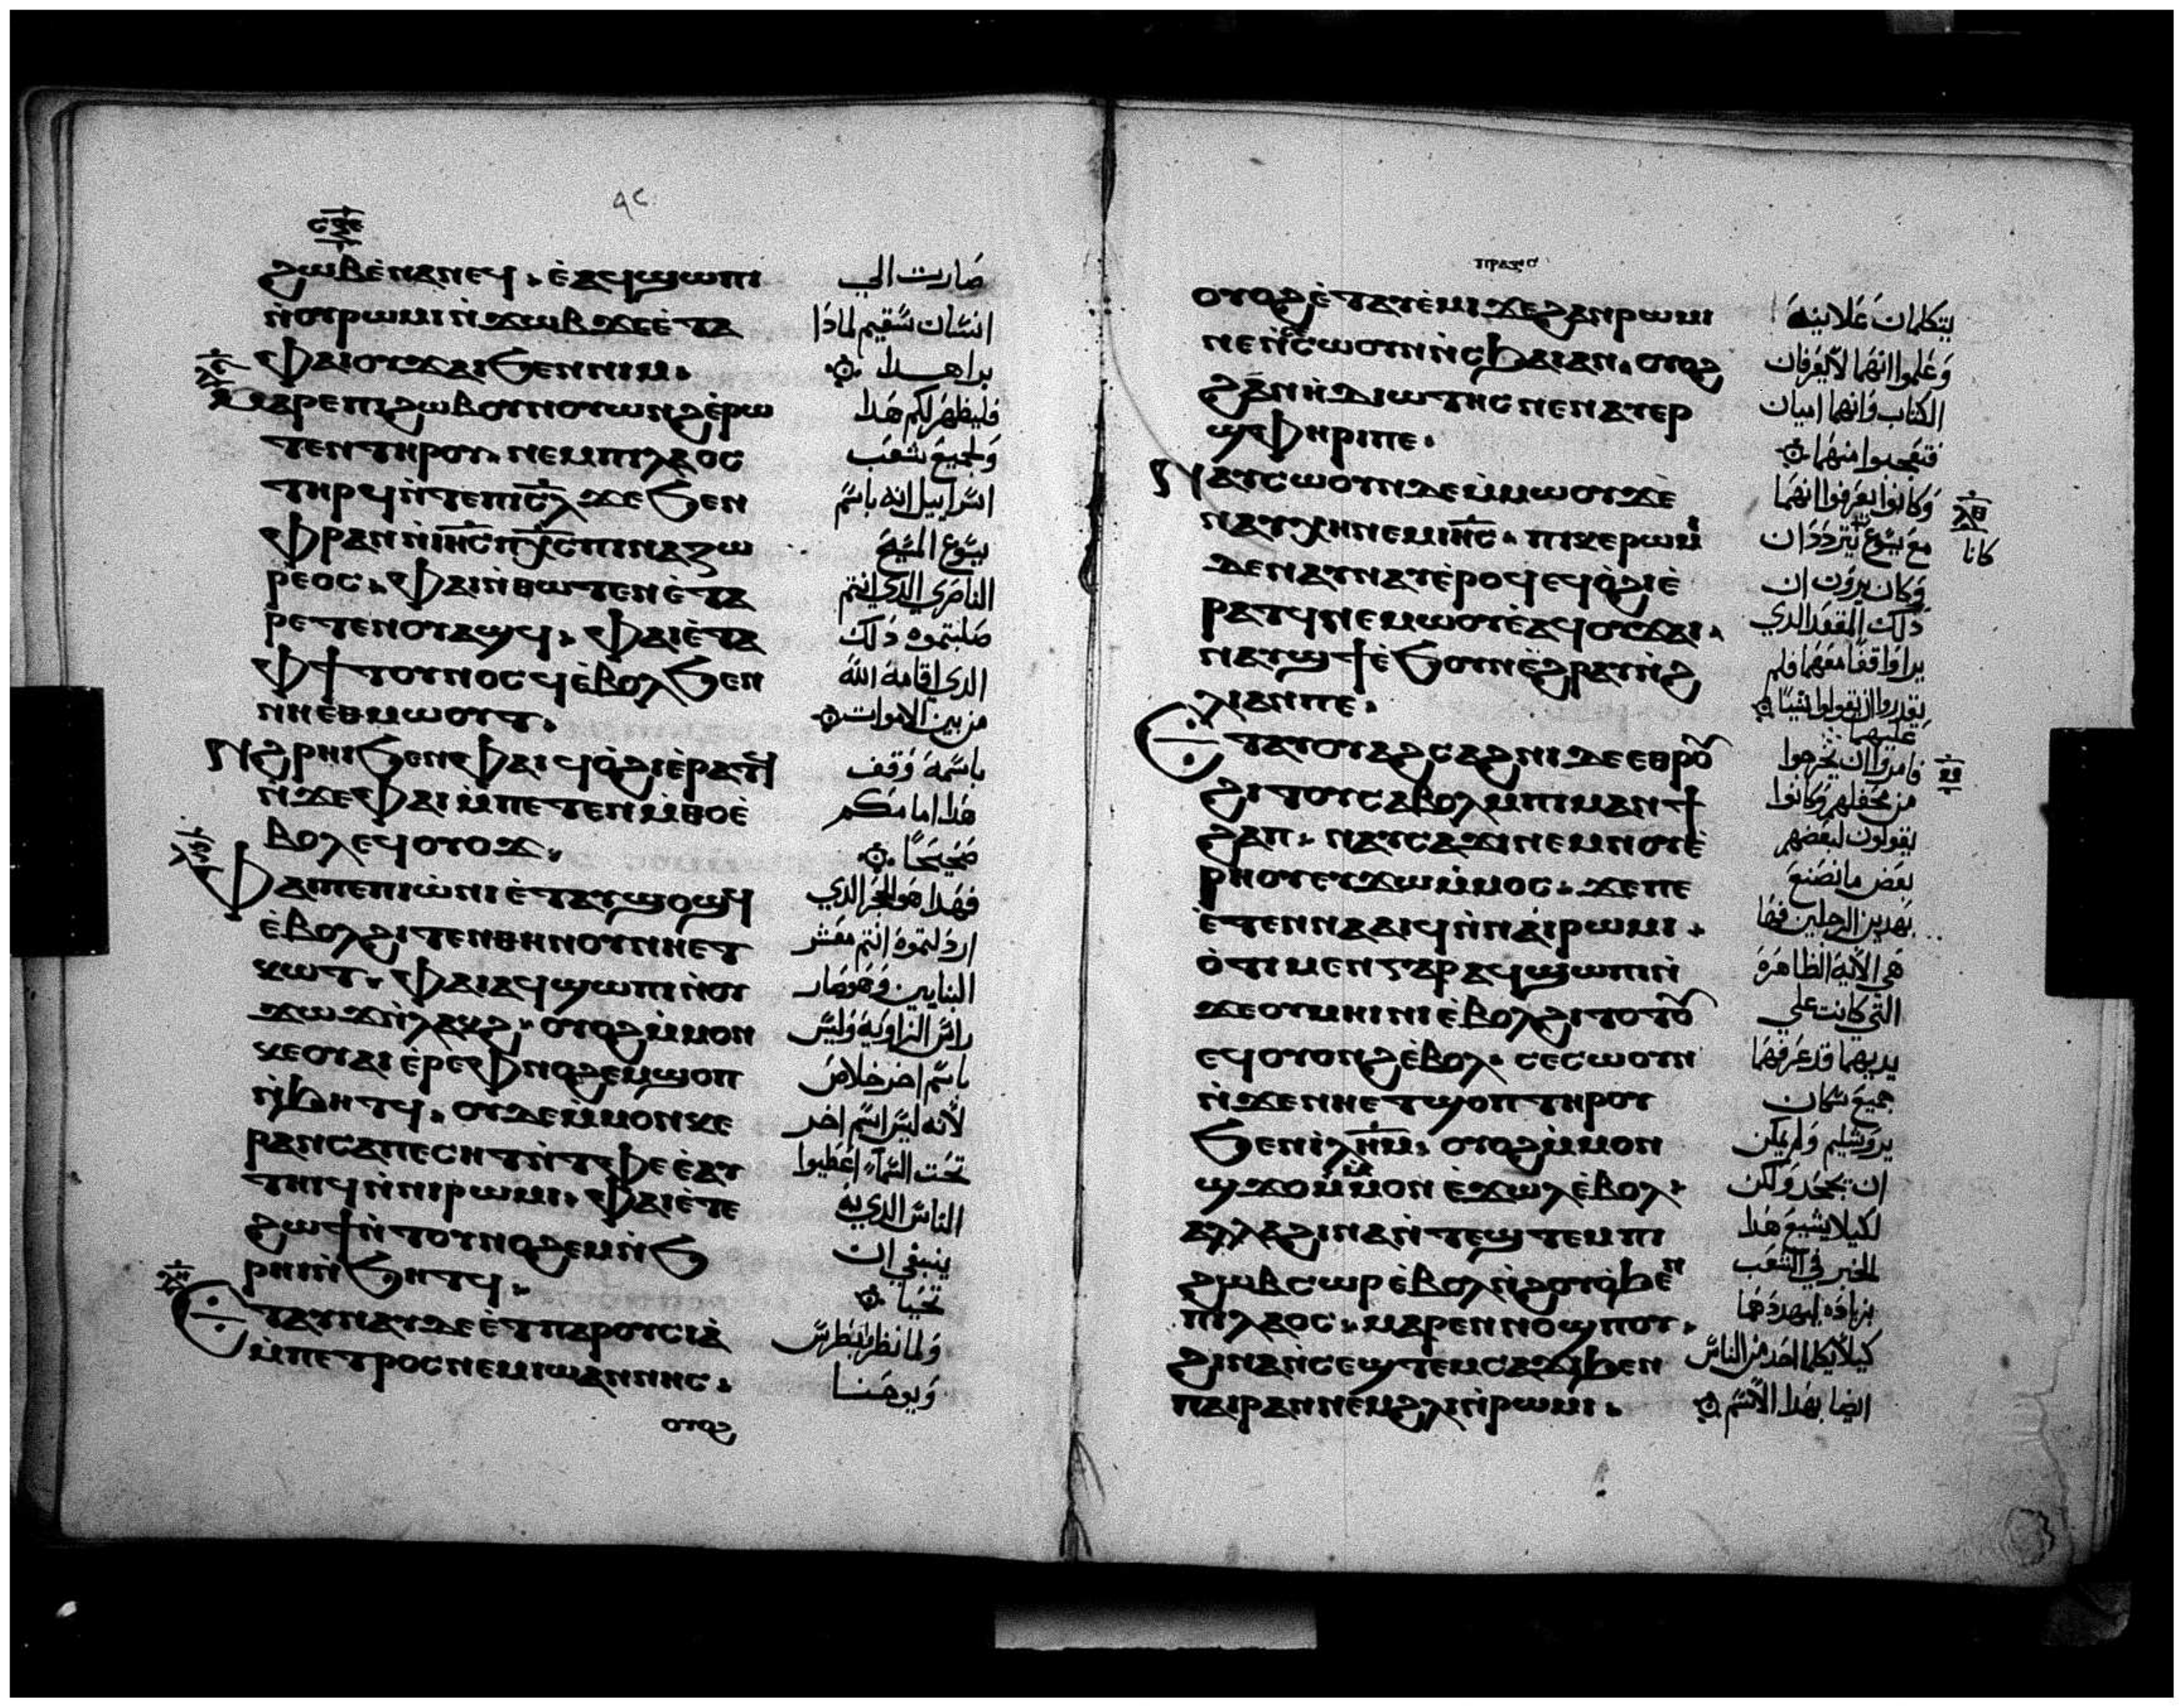 ϩⲱⲃ ⲉ̀ⲛⲁⲛⲉϥ ⲉ̀ⲁϥϣⲱⲡⲓ
ⲛ̀ⲟⲩⲣⲱⲙⲓ ⲛ̀ϫⲱⲃ ϫⲉ ⲉ̀ⲧⲁ
ⲫⲁⲓ ⲟⲩϫⲁⲓ ϧⲉⲛ ⲛⲓⲙ
ⲙⲁⲣⲉ ⲡⲓϩⲱⲃ ⲟⲩⲛ ⲟⲩⲱⲛϩ ⲉ̀ⲣⲱ
ⲧⲉⲛ ⲧⲏⲣⲟⲩ ⲛⲉⲙ ⲡⲓⲗⲁⲟⲥ
ⲧⲏⲣϥ ⲛ̀ⲧⲉ ⲡⲓⲥ̅ⲗ ϫⲉ ϧⲉⲛ
ⲫⲣⲁⲛ ⲛ̀ⲓⲏ̅ⲥ ⲡⲭ̅ⲥ ⲡⲓⲛⲁⲍⲱ
ⲣⲉⲟⲥ ⲫⲁⲓ ⲛ̀ⲑⲱⲧⲉⲛ ⲉ̀ⲧⲁ
ⲣⲉⲧⲉⲛⲟⲩⲁϣϥ ⲫⲁⲓ ⲉ̀ⲧⲁ
ⲫϯ ⲧⲟⲩⲛⲟⲥϥ ⲉ̀ⲃⲟⲗ ϧⲉⲛ
ⲛⲏ ⲉⲑⲙⲱⲟⲩⲧ
ⲛϩⲣⲏⲓ ϧⲉⲛ ⲫⲁⲓ ϥⲟ̀ϩⲓ ⲉ̀ⲣⲁⲧϥ
ⲛ̀ϫⲉ ⲫⲁⲓ ⲙ̀ⲡⲉⲧⲉⲛⲙ̀ⲑⲟ ⲉ̀
ⲃⲟⲗ ⲉϥⲟⲩⲟϫ
ⲫⲁⲓ ⲡⲉ ⲡⲓⲱ̀ⲛⲓ ⲉ̀ⲧⲁⲩϣⲟϣϥ
ⲉ̀ⲃⲟⲗ ϩⲓⲧⲉⲛ ⲑⲏⲛⲟⲩ ⲛⲏ ⲉⲧ
ⲕⲱⲧ ⲫⲁⲓ ⲁϥϣⲱⲡⲓ ⲛ̀ⲟⲩ
ϫⲱϫ ⲛ̀ⲗⲁⲕϩ ⲟⲩⲟϩ ⲙ̀ⲙⲟⲛ
ⲕⲉⲟⲩⲁⲓ ⲉ̀ⲣⲉ ⲫⲛⲟϩⲉⲙ ϣⲟⲡ
ⲛ̀ϧⲏⲧϥ ⲟⲩⲇⲉ ⲙ̀ⲙⲟⲛ ⲕⲉ
ⲣⲁⲛ ⲥⲁⲡⲉⲥⲏⲧ ⲛ̀ⲧⲫⲉ ⲉ̀ⲁⲩ
ⲧⲏⲓϥ ⲛ̀ⲛⲓⲣⲱⲙⲓ ⲫⲁⲓ ⲉ̀ⲧⲉ
ϩⲱϯ ⲛ̀ⲧⲟⲩⲛⲟϩⲉⲙ ⲛ̀ϧ
ⲣⲏⲓ ⲛ̀ϧⲏⲧϥ
ⲉⲧⲁⲩⲛⲁⲩ ⲇⲉ ⲉ̀ⲧⲡⲁⲣⲟⲩⲥⲓⲁ̀
ⲙ̀ⲡⲉⲧⲣⲟⲥ ⲛⲉⲙ ⲓⲱⲁⲛⲛⲏⲥ
ⲟⲩⲟϩ
صارت الي
انسان سقيم لماذا
برا هدا
فليظهر لكم هدا
ولجميع شعب
اسراييل انه باسم
يسوع المسيح
الناصري الدي انتم
صلبتموه دلك
الدي اقامه الله
من بين الاموات
باسمه وقف
هدا امامكم
صحيحا
فهدا هو الحجر الدي
اردلتموه انتم معشر
البنايين وهو صار
راس الزاوية وليس
باسم اخر خلاص
لانه ليس اسم اخر
تحت السماء اعطيوا
الناس الدي به
ينبغي ان
نحيا
ولما نظر بطرس
ويوحنا
ⲡⲣⲁⲝⲓⲥ
ⲟⲩⲟϩ ⲉ̀ⲧⲁⲩⲉ̀ⲙⲓ ϫⲉ ϩⲁⲛⲣⲱⲙⲓ
ⲛⲉ ⲛ̀ⲥⲉⲥⲱⲟⲩⲛ ⲛ̀ⲥϧⲁⲓ ⲁⲛ ⲟⲩⲟϩ
ϩⲁⲛⲏ̀ⲇⲓⲱⲧⲏⲥ ⲛⲉ ⲛⲁⲩⲉⲣ
ϣⲫⲏⲣⲓ ⲡⲉ
ⲛⲁⲩⲥⲱⲟⲩⲛ ⲇⲉ ⲙ̀ⲙⲱⲟⲩ ϫⲉ̀
ⲛⲁⲩⲭⲏ ⲛⲉⲙ ⲓⲏ̅ⲥ ⲡⲓⲕⲉⲣⲱⲙⲓ
ⲇⲉ ⲛⲁⲩⲛⲁⲩ ⲉ̀ⲣⲟϥ ⲉϥⲟ̀ϩⲓ ⲉ̀
ⲣⲁⲧϥ ⲛⲉⲙⲱⲟⲩ ⲉ̀ⲁϥⲟⲩϫⲁⲓ
ⲛⲁⲩϣϯ ⲉ̀ϧⲟⲩⲛ ⲉ̀ϩⲣⲁⲩ ⲛ̀ϩ
ⲗⲓ ⲁⲛ ⲡⲉ
ⲉⲧⲁⲩⲟⲩⲁϩⲥⲁϩⲛⲓ ⲇⲉ ⲉⲑⲣⲟⲩ
ϩⲓⲧⲟⲩ ⲥⲁⲃⲟⲗ ⲙ̀ⲡⲓⲙⲁⲛϯ
ϩⲁⲡ ⲛⲁⲩⲥⲁϫⲓ ⲛⲉⲙ ⲛⲟⲩⲉ̀
ⲣⲏⲟⲩ ⲉⲩϫⲱ ⲙ̀ⲙⲟⲥ ϫⲉ ⲡⲉ
ⲉ̀ⲧⲉⲛⲛⲁⲁⲓϥ ⲛ̀ⲛⲁⲓⲣⲱⲙⲓ
ⲟ̀ⲧⲓ ⲙⲉⲛ ⲅⲁⲣ ⲁϥϣⲱⲡⲓ ⲛ̀
ϫⲉ ⲟⲩⲙⲏⲓⲛⲓ ⲉ̀ⲃⲟⲗ ϩⲓⲧⲟⲧⲟⲩ
ⲉϥⲟⲩⲟⲛϩ ⲉ̀ⲃⲟⲗ ⲥⲉⲥⲱⲟⲩⲛ
ⲛ̀ϫⲉ ⲛⲏ ⲉⲧϣⲟⲡ ⲧⲏⲣⲟⲩ
ϧⲉⲛ ⲓ̀ⲗⲏ̅ⲙ ⲟⲩⲟϩ ⲙ̀ⲙⲟⲛ
ϣϫⲟⲙ ⲙ̀ⲙⲟⲛ ⲉ̀ϫⲱⲗ ⲉ̀ⲃⲟⲗ
ⲁⲗⲗⲁ ϩⲓⲛⲁ ⲛ̀ⲧⲉϣⲧⲉⲙ ⲡⲓ
ϩⲱⲃ ⲥⲱⲣ ⲉ̀ⲃⲟⲗ ⲛ̀ϩⲟⲩⲟ̀ ϧⲉⲛ
ⲡⲓⲗⲁⲟⲥ ⲙⲁⲣⲉⲛⲛⲟϣⲡⲟⲩ
ϩⲓⲛⲁ ⲛ̀ⲥⲉϣⲧⲉⲙⲥⲁϫⲓ ϧⲉⲛ
ⲡⲁⲓⲣⲁⲛ ⲛⲉⲙ ϩⲗⲓ ⲛ̀ⲣⲱⲙⲓ
يتكلمان علانية
وعلموا انهما لا يعرفان
الكتاب وانهما اميان
فتعجبوا منهما
وكانوا يعرفوا انهما
كانا
مع يسوع يترددان
وكان يرون ان
دلك المقعد الدي
برا واقفا معهما فلم
يقدروا ان يقولوا شيا
عليهما
فامروا ان يخرجوا
من محفلهم وكانوا
يقولون لبعضهم
بعض ما نصنع
بهدين الرجلين فها
هي الاية الظاهرة
التي كانت علي
يديهما قد عرفها
جميع سكان
يروشليم ولم يمكن
ان نجحد ولكن
لكيلا يشيع هدا
الخبر في الشعب
بزيادة لنهددهما
كيلا يكلما احد من الناس
ايضا بهدا الاسم